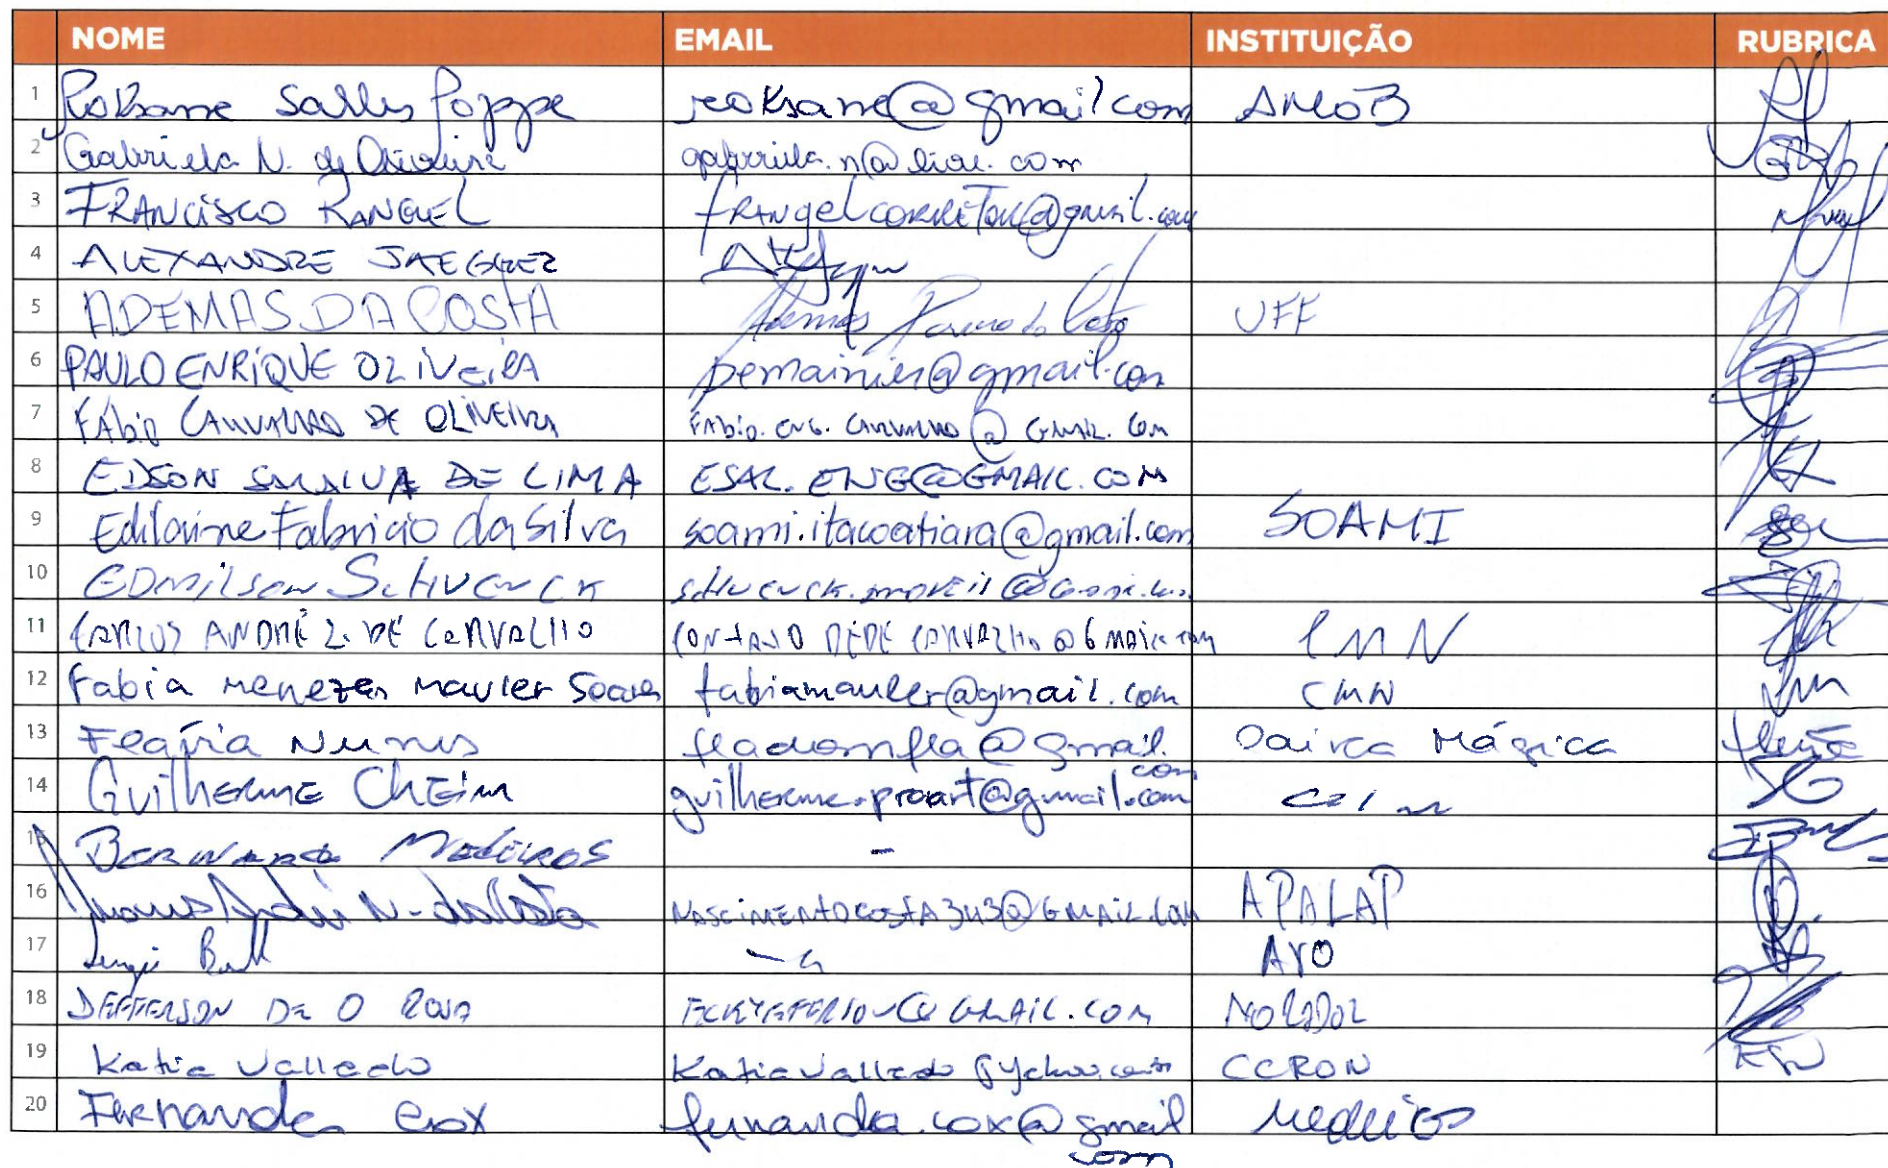 NOME EMAIL INSTITUIÇÃO RUBRICA
1 Roksane Salles Poppe reoksane@gmail.com AMOB
2 Gabriela N. de Oliveira gabriela.n@live.com
3 FRANCISCO RANGEL frangelcorretor@gmail.com
4 ALEXANDRE JAEGGER
5 ADEMAS DA COSTA UFF
6 PAULO ENRIQUE OLIVEIRA pemainier@gmail.com
7 FÁBIO CARVALHO DE OLIVEIRA FÁBIO.ENG.CARVALHO@GMAIL.COM
8 EDSON SARAIVA DE LIMA ESAL.ENG@GMAIL.COM
9 Edilaine Fabricio da Silva soami.itacoatiara@gmail.com SOAMI
10 EDMILSON SCHUENCK
11 CARLOS ANDRÉ L. DE CARVALHO CMN
12 Fabia Menezes Mauler Soares fabiamauler@gmail.com CMN
13 Flávia Nunes fladomfla@gmail.com Oairca Mágica
14 Guilherme Cheim guilherme.proart@gmail.com
BERNARDO MEDEIROS -
16 NASCIMENTOCOSTA343@GMAIL.COM APALAP
17 AYO
18 JEFFERSON DE O ROSA MORADOR
19 Katia Vallado CCRON
20 Fernanda Cox fernanda.cox@gmail.com